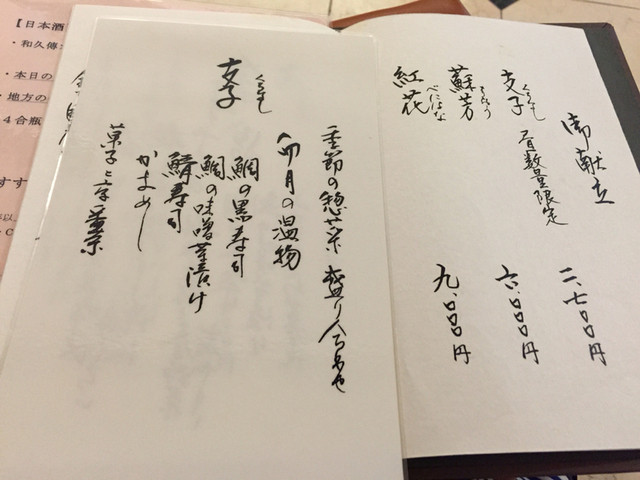 御献立
支子 くちなし 各日数量限定 二、七〇〇円
蘇芳 すおう 六、〇〇〇円
紅花 べにばな 九、〇〇〇円
支子 くちなし
季節の惣菜 盛り合わせ
卯月の温物
鯛の黒寿司
鯛の味噌茶漬け
鯖寿司
かまめし
菓子と京番茶
【日本酒
・和久傳
・本日の
・地方の
4合瓶
すす